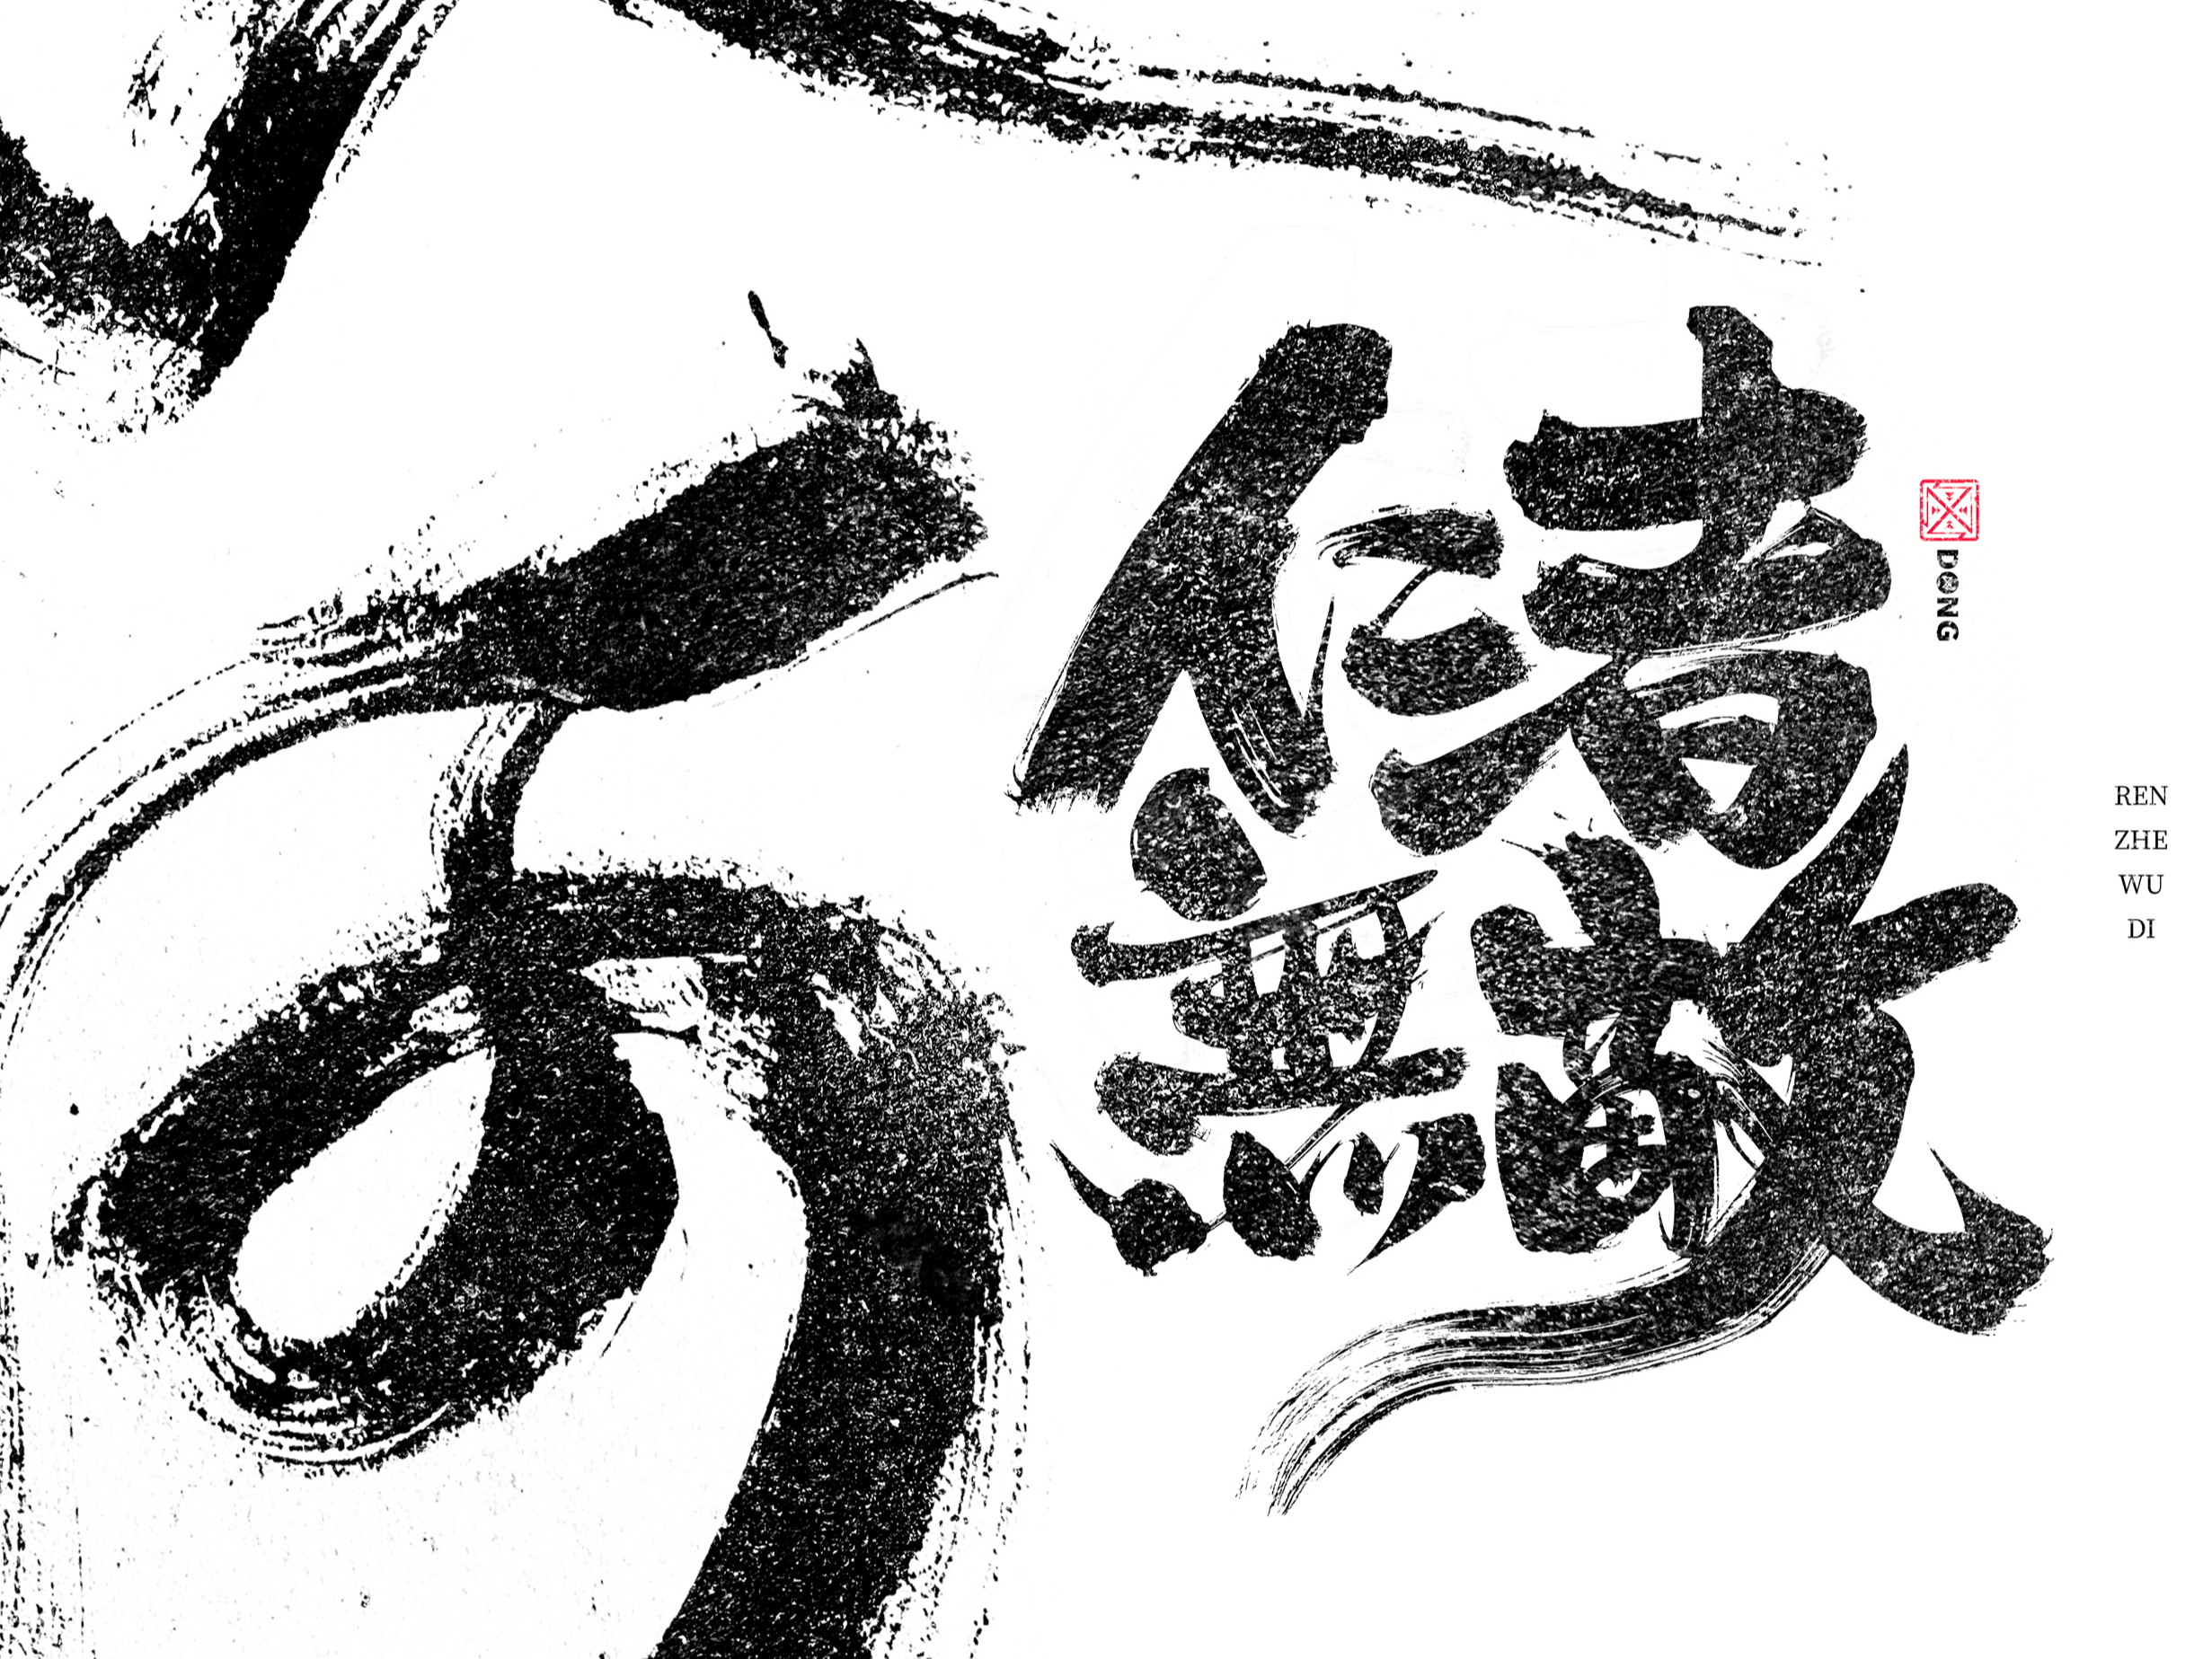 仁者
無敵
DONG
REN
ZHE
WU
DI